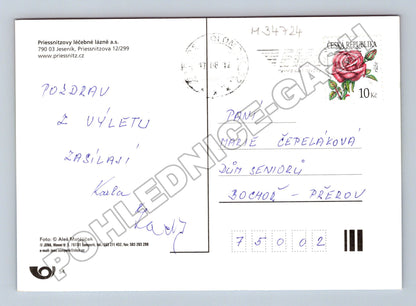 Priessnitzovy léčebné lázně a.s.
790 03 Jeseník, Priessnitzova 12/299
www.priessnitz.cz
M-34724
ČESKÁ REPUBLIKA
10 Kč
POZDRAV
Z VÝLETU
ZASÍLAJÍ
PANÍ
MARIE ČEPELÁKOVÁ
DŮM SENIORŮ
BOCHOŘ - PŘEROV
75002
Foto: © Aleš Motejzek
POHLEDNICE-GASH